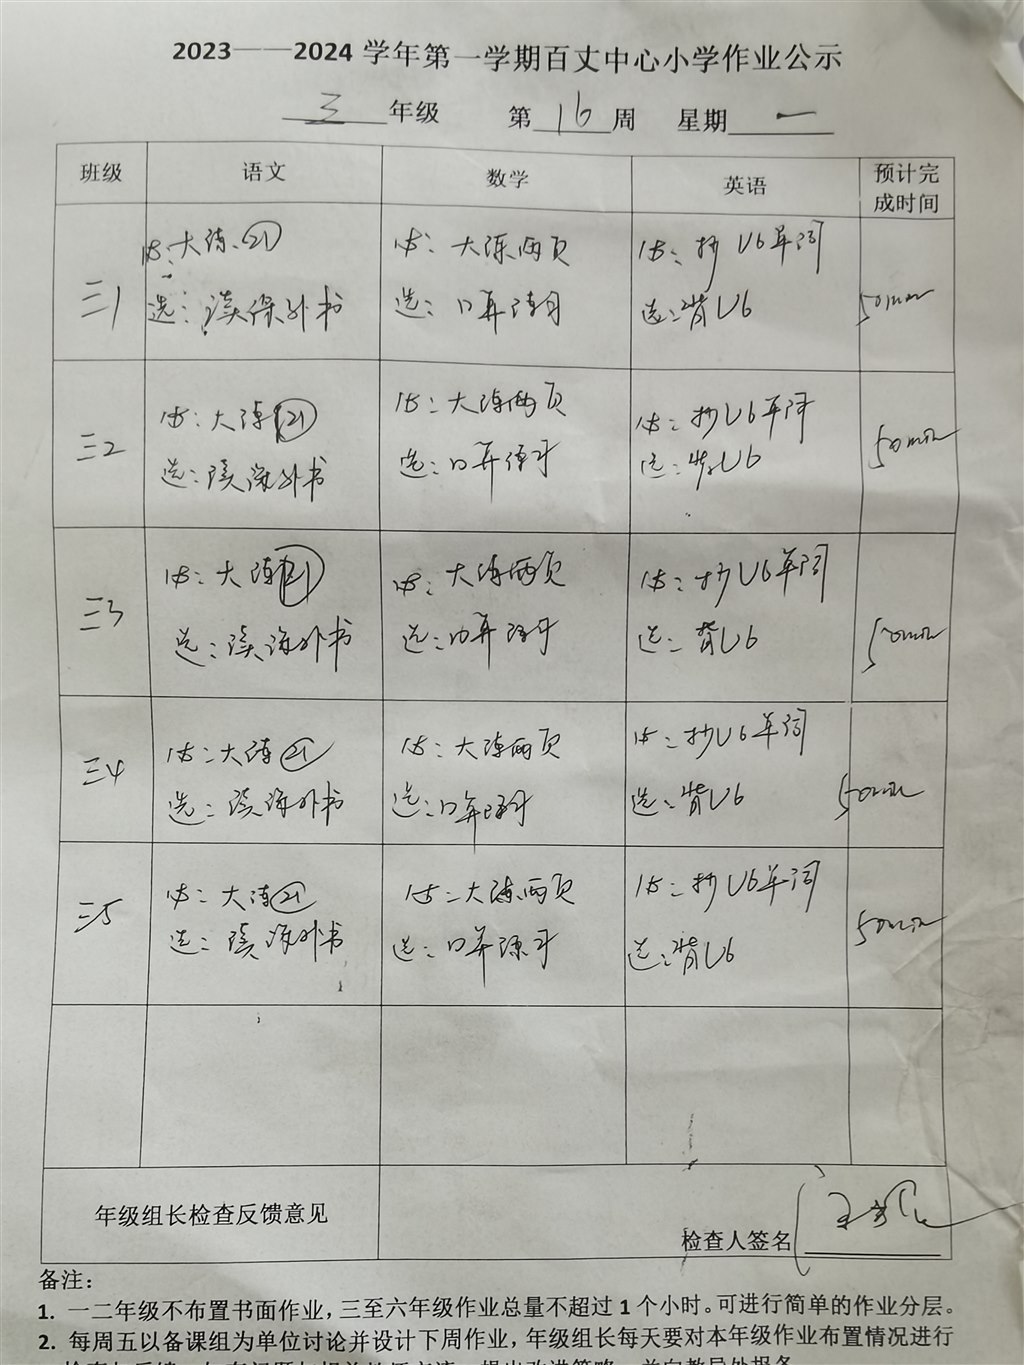 2023——2024 学年第一学期百丈中心小学作业公示
三 年级 第 16 周 星期 一
班级 语文 数学 英语 预计完成时间
三1 必：大练㉑ 必：大练两页 必：抄U6单词 50min
选：读课外书 选：口算 选：背U6
三2 必：大练㉑ 必：大练两页 必：抄U6单词 50min
选：读课外书 选：口算 选：背U6
三3 必：大练㉑ 必：大练两页 必：抄U6单词 50min
选：读课外书 选：口算 选：背U6
三4 必：大练㉑ 必：大练两页 必：抄U6单词 50min
选：读课外书 选：口算 选：背U6
三5 必：大练㉑ 必：大练两页 必：抄U6单词 50min
选：读课外书 选：口算 选：背U6
年级组长检查反馈意见
检查人签名
备注：
1. 一二年级不布置书面作业，三至六年级作业总量不超过 1 个小时。可进行简单的作业分层。
2. 每周五以备课组为单位讨论并设计下周作业，年级组长每天要对本年级作业布置情况进行